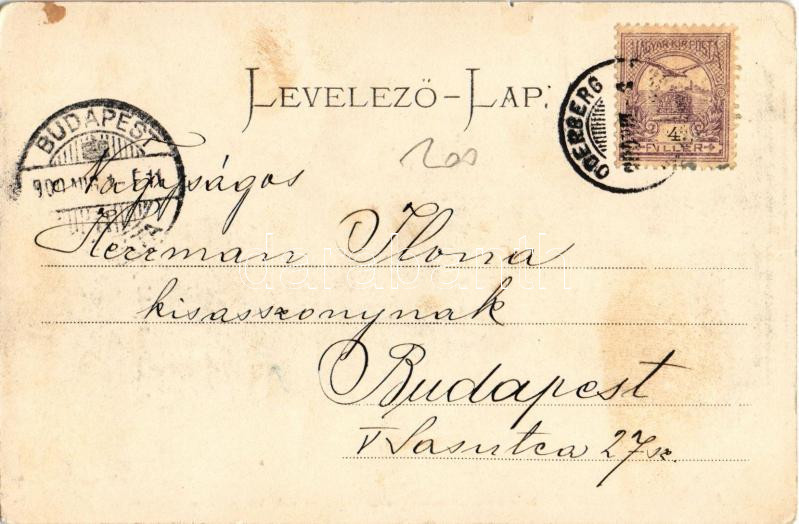 LEVELEZŐ-LAP.
MAGYAR KIR. POSTA
4
FILLÉR
ODERBERG
BUDAPEST
200
Nagyságos
Herrman Ilona
kisasszonynak
Budapest
V Sasutca 27 sz.
darabanth